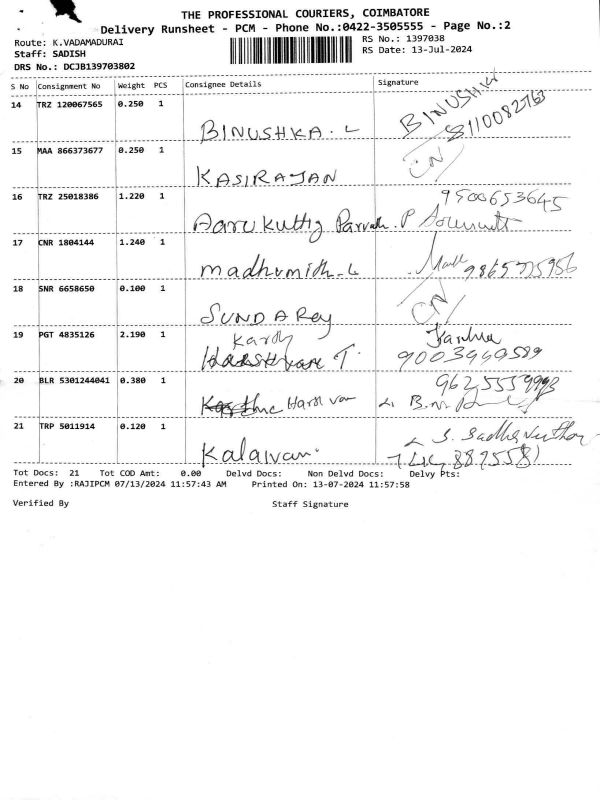 THE PROFESSIONAL COURIERS, COIMBATORE
Delivery Runsheet - PCM - Phone No.:0422-3505555 - Page No.:2
Route: K.VADAMADURAI
Staff: SADISH
DRS No.: DCJB139703802
RS No.: 1397038
RS Date: 13-Jul-2024
S No Consignment No Weight PCS Consignee Details Signature
14 TRZ 120067565 0.250 1
BINUSHKA. L BINUSHKA
15 MAA 866373677 0.250 1
KASIRAJAN CN
16 TRZ 25018386 1.220 1 9500653645
Aarukutty P
17 CNR 1804144 1.240 1
madhumidh. L
18 SNR 6658650 0.100 1
SUNDARAJ CN
19 PGT 4835126 2.190 1
T. 9003949589
20 BLR 5301244041 0.380 1
21 TRP 5011914 0.120 1
Kalaivani
Tot Docs: 21 Tot COD Amt: 0.00 Delvd Docs: Non Delvd Docs: Delvy Pts:
Entered By :RAJIPCM 07/13/2024 11:57:43 AM Printed On: 13-07-2024 11:57:58
Verified By Staff Signature